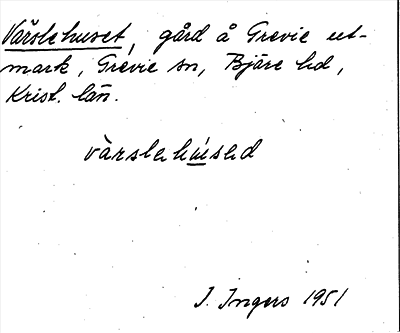 Värslehuset, gård å Grevie ut-
mark, Grevie sn, Bjäre hd,
Krist. län.
I. Ingers 1951